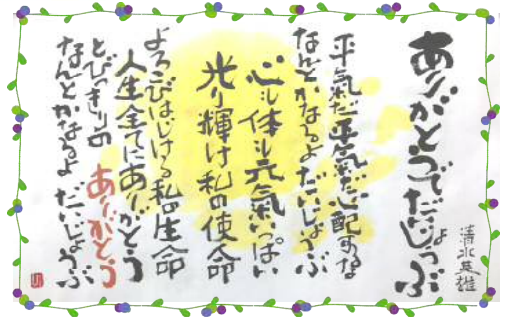 ありがとうでだいじょうぶ
清水英雄
平氣だ平氣だ心配するな
なんとかなるよだいじょうぶ
心も体も元氣いっぱい
光り輝け私の使命
よろこびはじける私の生命
人生全てにありがとう
とびっきりの ありがとう
なんとかなるよ だいじょうぶ